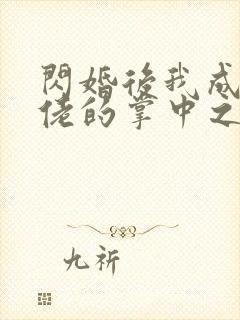 閃婚後我成
佬的掌中之
九祈